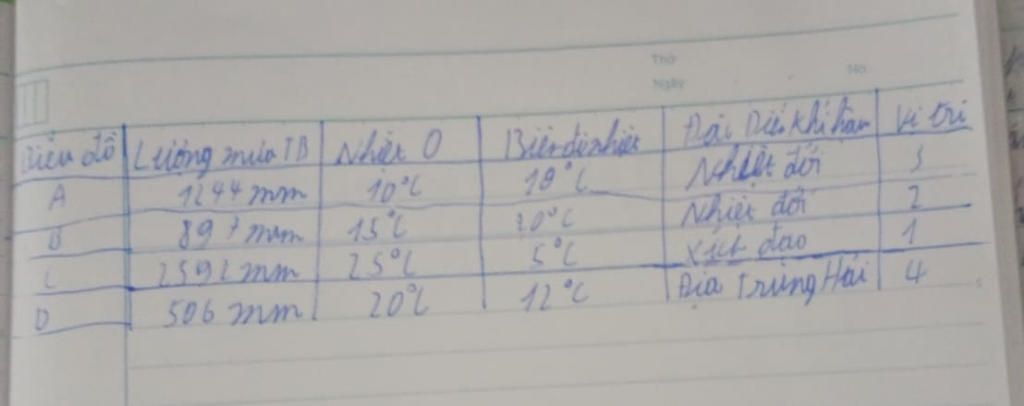 Thứ
Ngày No.
Biểu đồ Lượng mưa TB Nhiệt O Biên độ nhiệt Đặc Điểm khí hậu Vị trí
A 1244 mm 10°C 18°C Nhiệt đới 3
B 897 mm 15°C 20°C Nhiệt đới 2
C 2592 mm 25°C 5°C Xích đạo 1
D 506 mm 20°C 12°C Địa Trung Hải 4